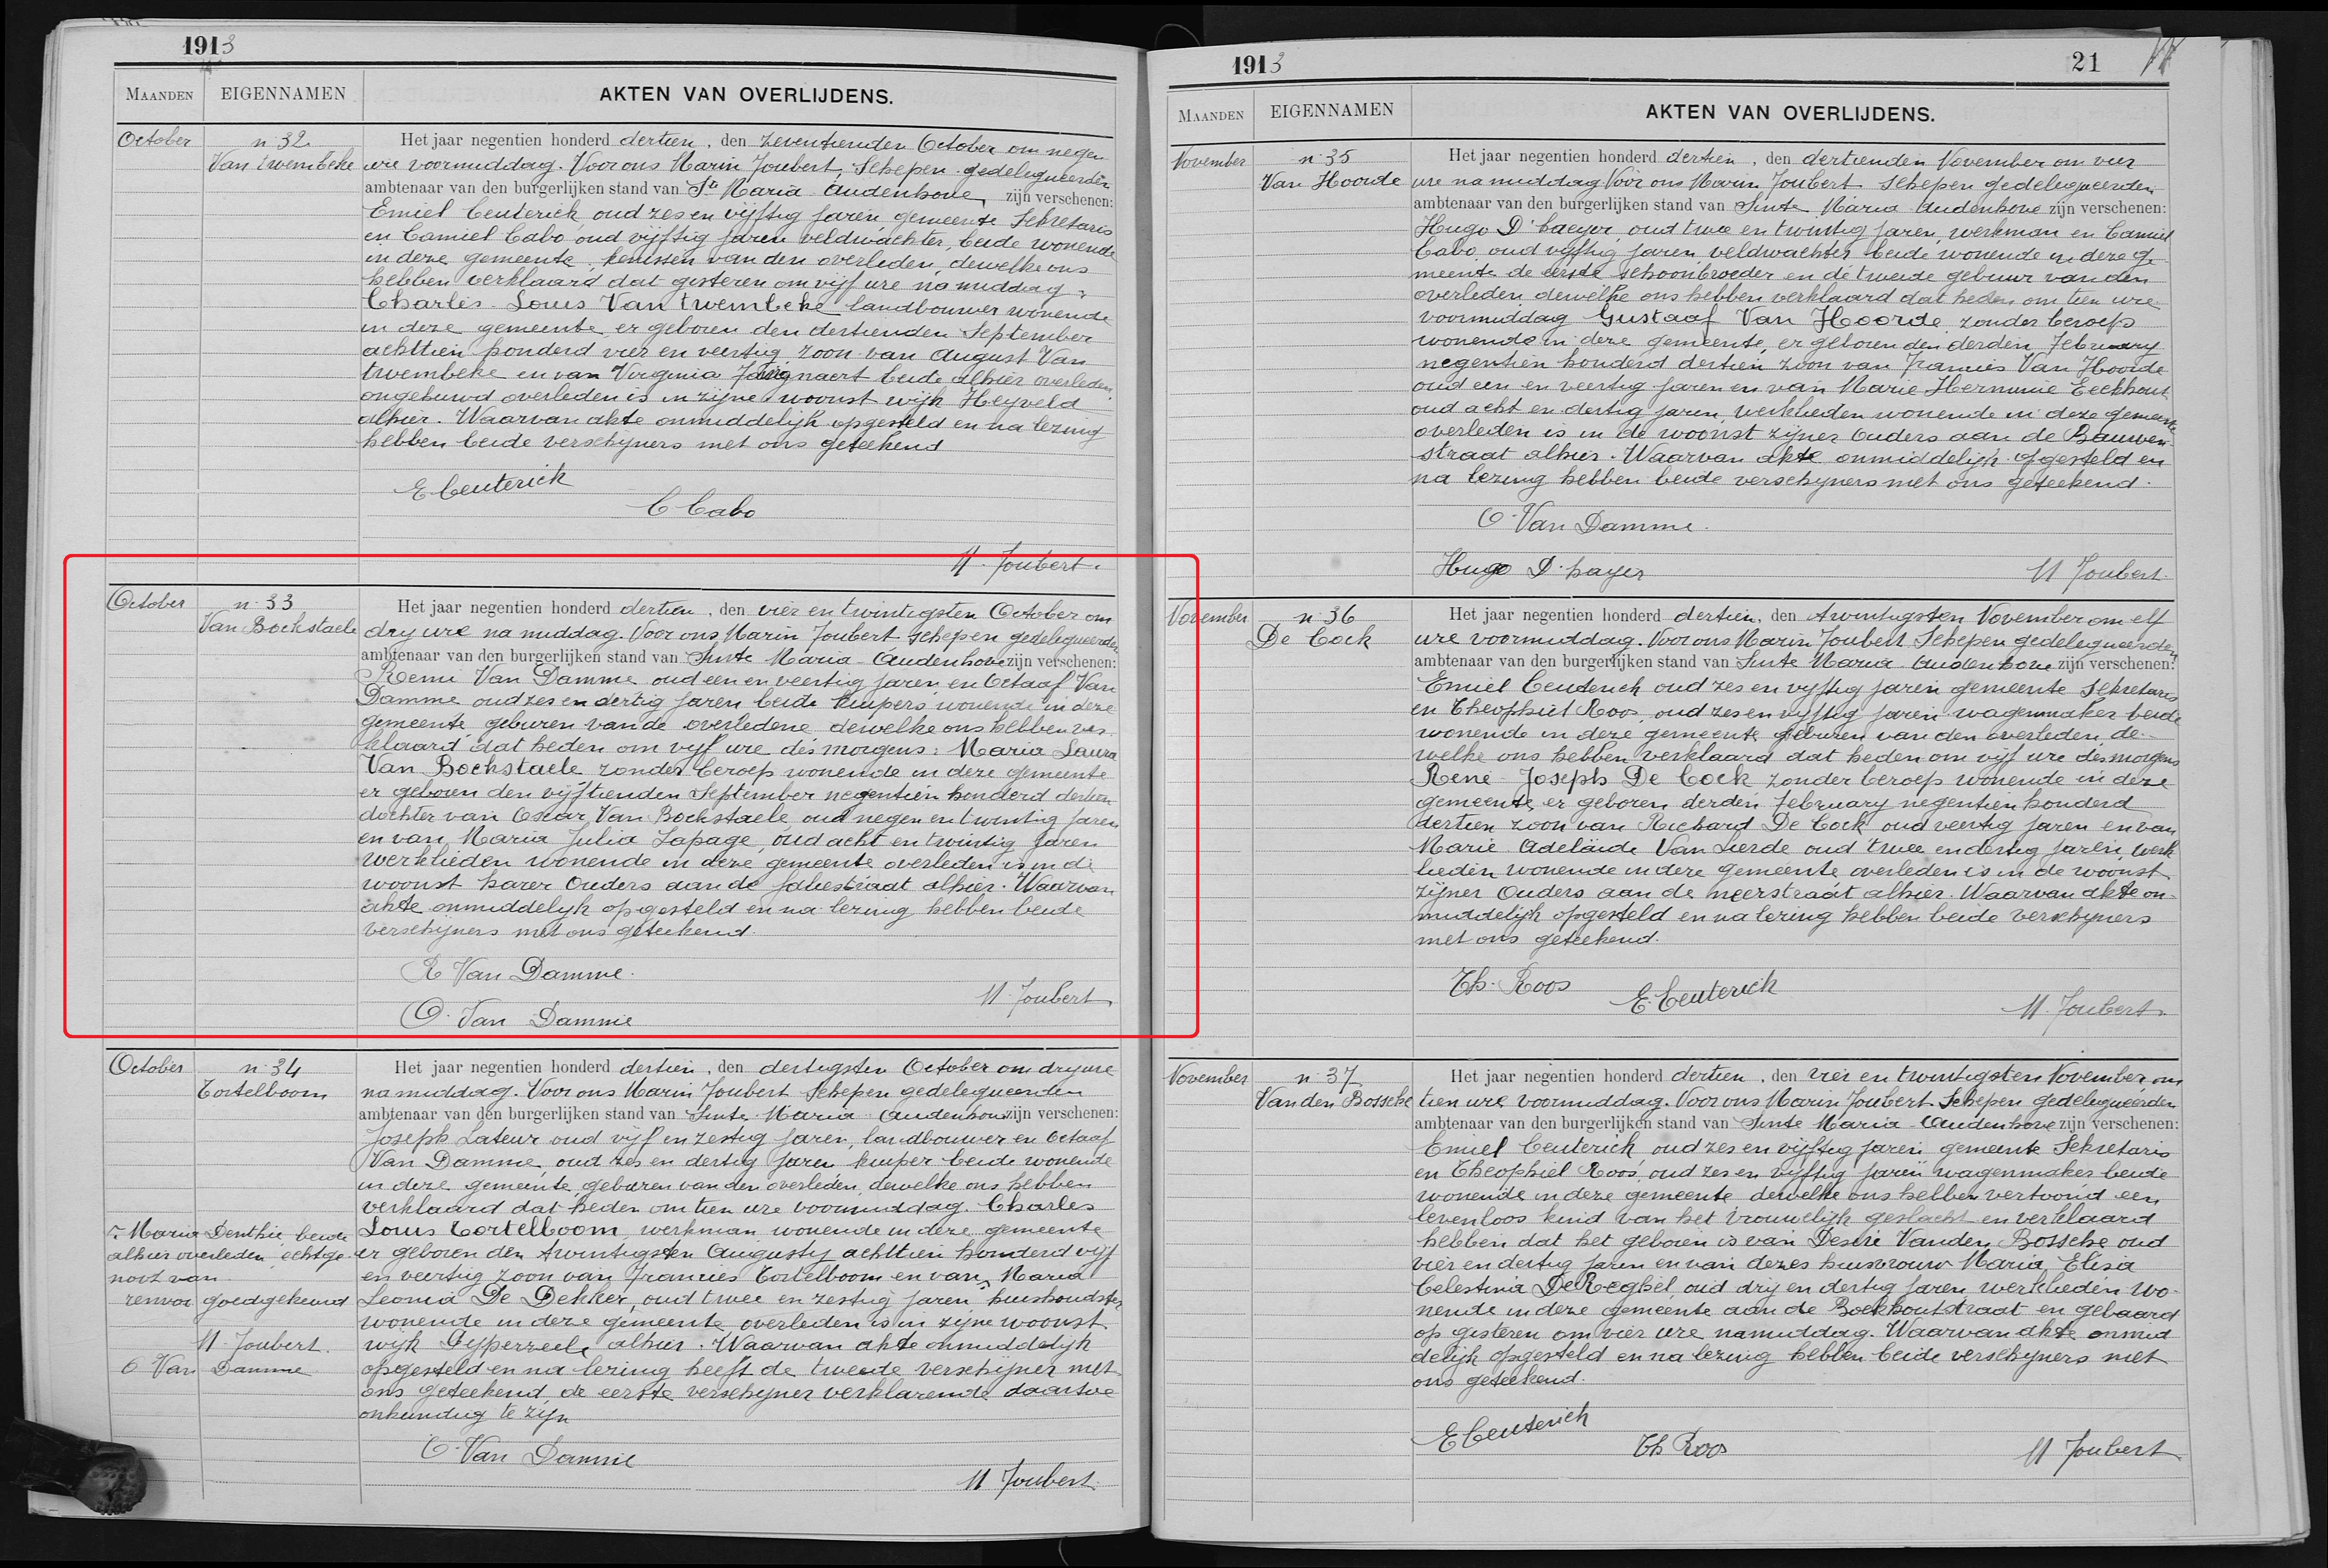 1913
MAANDEN EIGENNAMEN AKTEN VAN OVERLIJDENS.
October n. 32. Van Twembeke
Het jaar negentien honderd dertien, den zeventienden October om negen
ure voormiddag. Voor ons Marin Joubert, Schepen gedelegueerden
ambtenaar van den burgerlijken stand van Ste Maria Audenhove, zijn verschenen:
Emiel Ceuterick oud zes en vijftig jaren, gemeente Sekretaris
en Camiel Cabo oud vijftig jaren veldwachter, beide wonende
in deze gemeente, kenissen van den overleden, dewelke ons
hebben verklaard dat gisteren om vijf ure namiddag,
Charles Louis Van Twembeke landbouwer wonende
in deze gemeente er geboren den dertienden September
achttien honderd vier en veertig, zoon van August Van
twembeke en van Virginia beide alhier overleden,
ongehuwd overleden is in zijne woonst wijk Heyveld
alhier. Waarvan akte onmiddelijk opgesteld en na lezing
hebben beide verschijners met ons geteekend
E Ceuterick
C Cabo
M. Joubert.
October n. 33 Van Bockstaele
Het jaar negentien honderd dertien, den vier en twintigsten October om
dry ure na middag. Voor ons Marin Joubert Schepen gedelegueerden
ambtenaar van den burgerlijken stand van Sinte Maria-Audenhove zijn verschenen:
Remi Van Damme oud een en veertig jaren en Octaaf Van
Damme oud zes en dertig jaren beide kuipers wonende in deze
gemeente, geburen van de overledene, dewelke ons hebben ver
klaard dat heden om vijf ure des morgens: Maria Laura
Van Bockstaele zonder beroep wonende in deze gemeente
er geboren den vijftienden September negentien honderd dertien
dochter van Oscar Van Bockstaele oud negen en twintig jaren
en van Maria Julia Lapage, oud acht en twintig jaren
werklieden wonende in deze gemeente overleden is in de
woonst harer Ouders aan de alhier. Waarvan
akte onmiddelijk opgesteld en na lezing hebben beide
verschijners met ons geteekend.
R Van Damme.
M. Joubert
O. Van Damme
October n. 34 Cortelboom
Het jaar negentien honderd dertien, den dertigsten October om dry ure
namiddag. Voor ons Marin Joubert Schepen gedelegueerden
ambtenaar van den burgerlijken stand van Sinte Maria-Audenhove zijn verschenen:
Joseph Lateur oud vijf en zestig jaren, landbouwer en Octaaf
Van Damme, oud zes en dertig jaren kuiper beide wonende
in deze gemeente, geburen van den overleden, dewelke ons hebben
verklaard dat heden om tien ure voormiddag. Charles
Louis Cortelboom, werkman, wonende in deze gemeente
er geboren den twintigsten Augusty achttien honderd vijf
en veertig zoon van Francies Cortelboom en van Maria
Leonia De Dekker, oud twee en zestig jaren huishoudster
wonende in deze gemeente overleden is in zijne woonst
wijk alhier. Waarvan akte onmiddelijk
opgesteld en na lezing heeft de tweede verschijner met
ons geteekend, de eerste verschijner verklarende daartoe
onkundig te zijn
Maria beide
alhier overleden, echtge
noot van
renvoi goedgekeurd
M Joubert.
O Van Damme
O. Van Damme
M Joubert.
1913 21
MAANDEN EIGENNAMEN AKTEN VAN OVERLIJDENS.
November n. 35 Van Hoorde
Het jaar negentien honderd dertien, den dertienden November om vier
ure namiddag Voor ons Marin Joubert Schepen gedelegueerden
ambtenaar van den burgerlijken stand van Sinte Maria Audenhove zijn verschenen:
Hugo D'haeyer, oud twee en twintig jaren, werkman en Camiel
Cabo, oud vijftig jaren, veldwachter beide wonende in deze ge
meente de eerste schoonbroeder en de tweede gebuur van den
overleden, dewelke ons hebben verklaard dat heden om tien ure
voormiddag Gustaaf Van Hoorde, zonder beroep
wonende in deze gemeente, er geboren den derden February
negentien honderd dertien zoon van Francies Van Hoorde
oud een en veertig jaren en van Marie Hermine Eeckhout
oud acht en dertig jaren, werklieden wonende in deze gemeente
overleden is in de woonst zijner Ouders aan de Bauwen
straat alhier. Waarvan akte onmiddelijk opgesteld en
na lezing hebben beide verschijners met ons geteekend.
O. Van Damme.
Hugo D'hayer
M Joubert.
November n. 36 De Cock
Het jaar negentien honderd dertien, den twintigsten November om elf
ure voormiddag. Voor ons Marin Joubert Schepen gedelegueerden
ambtenaar van den burgerlijken stand van Sinte Maria Audenhove zijn verschenen:
Emiel Ceuterick oud zes en vijftig jaren gemeente Sekretaris
en Theophiel Roos, oud zes en vijftig jaren wagenmaker beide
wonende in deze gemeente, geburen van den overleden, de-
welke ons hebben verklaard dat heden om vijf ure des morgens
René-Joseph De Cock zonder beroep wonende in deze
gemeente, er geboren derden February negentien honderd
dertien zoon van Richard De Cock oud veertig jaren en van
Marie Adelaide Van Lierde oud twee en dertig jaren, werk
lieden wonende in deze gemeente overleden is in de woonst
zijner Ouders aan de neerstraat alhier. Waarvan akte on-
middelijk opgesteld en na lezing hebben beide verschijners
met ons geteekend.
Th. Roos
E. Ceuterick
M. Joubert.
November n. 37 Van den Bossche
Het jaar negentien honderd dertien, den vier en twintigsten November om
tien ure voormiddag. Voor ons Marin Joubert Schepen gedelegueerden
ambtenaar van den burgerlijken stand van Sinte Maria-Audenhove zijn verschenen:
Emiel Ceuterick oud zes en vijftig jaren gemeente Sekretaris
en Theophiel Roos, oud zes en vijftig jaren wagenmaker beide
wonende in deze gemeente dewelke ons hebben vertoond een
levenloos kind van het vrouwelijk geslacht en verklaard
hebben dat het geboren is van Desiré Vanden Bossche oud
vier en dertig jaren en van dezes huisvrouw Maria Elisa
Celestina De Reghel, oud drij en dertig jaren werklieden wo-
nende in deze gemeente aan de Boekhoutstraat en gebaard
op gisteren om vier ure namiddag. Waarvan akte onmid
delijk opgesteld en na lezing hebben beide verschijners met
ons geteekend.
E Ceuterick
Th Roos
M Joubert